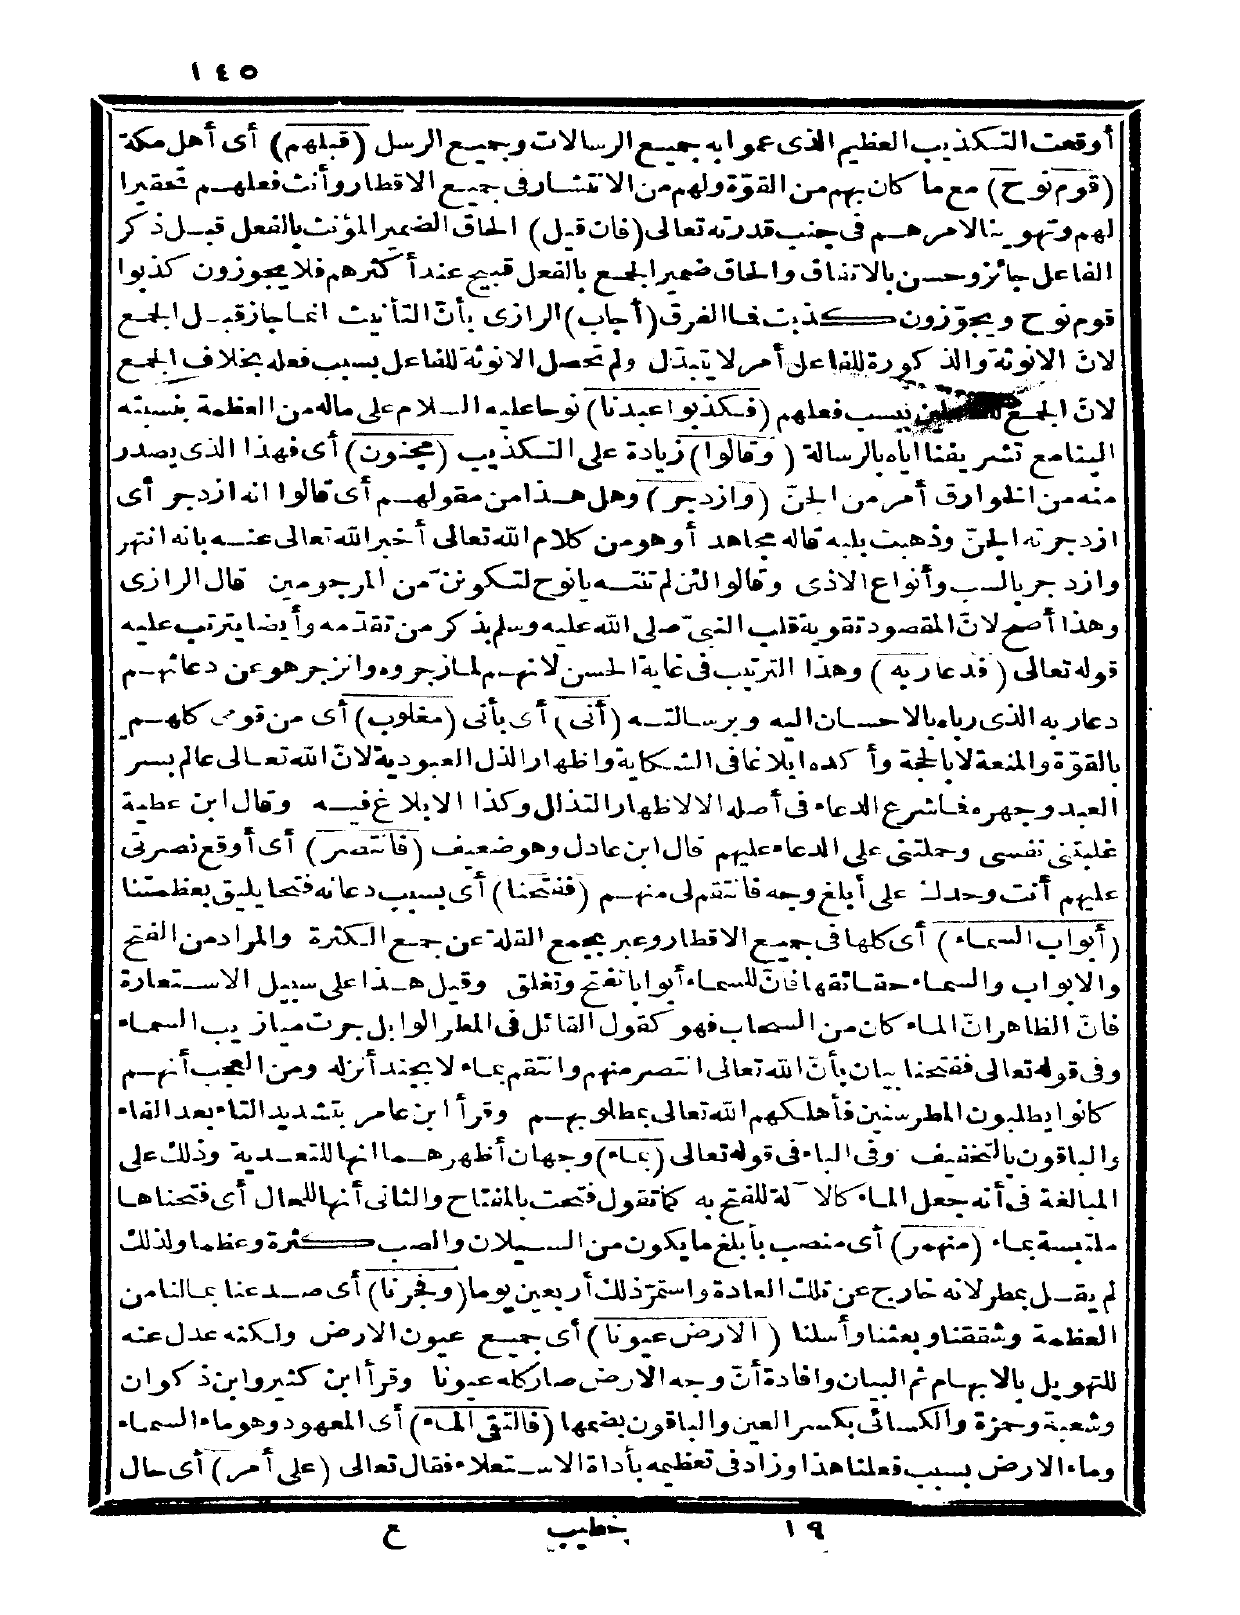 ١٤٥
أوقعت التكذيب العظيم الذى عموا به جميع الرسالات وجميع الرسل (قبلهم) أى أهل مكة
(قوم نوح) مع ما كان بهم من القوّة ولهم من الانتشار فى جميع الاقطار وأنث فعلهم تحقيرا
لهم وتهوينا لامرهم فى جنب قدرته تعالى (فان قيل) الحاق الضمير المؤنث بالفعل قبل ذكر
الفاعل جائز وحسن بالاتفاق والحاق ضمير الجمع بالفعل قبيح عند أكثرهم فلا يجوزون كذبوا
قوم نوح ويجوّزون كذبت فما الفرق (أجاب) الرازى بأنّ التأنيث انما جاز قبل الجمع
لانّ الانوثة والذكورة للفاعل أمر لا يتبدّل ولم تحصل الانوثة للفاعل بسبب فعله بخلاف الجمع
لانّ الجمع للفاعلين بسبب فعلهم (فكذبوا عبدنا) نوحا عليه السلام على ماله من العظمة بنسبته
الينا مع تشريفنا اياه بالرسالة (وقالوا) زيادة على التكذيب (مجنون) أى فهذا الذى يصدر
منه من الخوارق أمر من الجنّ (وازدجر) وهل هذا من مقولهم أى قالوا انه ازدجر أى
ازدجرته الجنّ وذهبت بلبه قاله مجاهد أو هو من كلام الله تعالى أخبر الله تعالى عنه بانه انتهر
وازدجر بالسب وأنواع الاذى وقالوا لئن لم تنته يا نوح لتكونن من المرجومين قال الرازى
وهذا أصح لانّ المقصود تقوية قلب النبىّ صلى الله عليه وسلم بذكر من تقدّمه وأيضا يترتب عليه
قوله تعالى (فدعا ربه) وهذا الترتيب فى غاية الحسن لانهم لما زجروه وانزجر هو عن دعائهم
دعا ربه الذى رباه بالاحسان اليه وبرسالته (أنى) أى بأنى (مغلوب) أى من قومى كلهم
بالقوّة والمنعة لا بالحجة وأكده ابلاغا فى الشكاية واظهار الذل العبودية لانّ الله تعالى عالم بسر
العبد وجهره فما شرع الدعاء فى أصله الا لاظهار التذلل وكذا الابلاغ فيه وقال ابن عطية
غلبتنى نفسى وحملتنى على الدعاء عليهم قال ابن عادل وهو ضعيف (فانتصر) أى أوقع نصرتى
عليهم أنت وحدك على أبلغ وجه فانتقم لى منهم (ففتحنا) أى بسبب دعائه فتحا يليق بعظمتنا
(أبواب السماء) أى كلها فى جميع الاقطار وعبر بجمع القلة عن جمع الكثرة والمراد من الفتح
والابواب والسماء حقائقها فانّ للسماء أبوابا تفتح وتغلق وقيل هذا على سبيل الاستعارة
فانّ الظاهر انّ الماء كان من السحاب فهو كقول القائل فى المطر الوابل جرت ميازيب السماء
وفى قوله تعالى ففتحنا بيان بأنّ الله تعالى انتصر منهم وانتقم بماء لا بجند أنزله ومن العجب أنهم
كانوا يطلبون المطر سنين فأهلكهم الله تعالى بمطلوبهم وقرأ ابن عامر بتشديد التاء بعد الفاء
والباقون بالتخفيف وفى الباء فى قوله تعالى (بماء) وجهان أظهرهما انها للتعدية وذلك على
المبالغة فى أنه جعل الماء كالآلة للفتح به كما تقول فتحت بالمفتاح والثانى أنها للحال أى فتحناها
ملتبسة بماء (منهمر) أى منصب بأبلغ ما يكون من السيلان والصب كثرة وعظما ولذلك
لم يقل بمطر لانه خارج عن تلك العادة واستمرّ ذلك أربعين يوما (وفجرنا) أى صدعنا بمالنا من
العظمة وشققنا وبعثنا وأسلنا (الارض عيونا) أى جميع عيون الارض ولكنه عدل عنه
للتهويل بالابهام ثم البيان وافادة أنّ وجه الارض صار كله عيونا وقرأ ابن كثير وابن ذكوان
وشعبة وحمزة والكسائى بكسر العين والباقون بضمها (فالتقى الماء) أى المعهود وهو ماء السماء
وماء الارض بسبب فعلنا هذا وزاد فى تعظيمه بأداة الاستعلاء فقال تعالى (على أمر) أى حال
١٩ خطيب ع